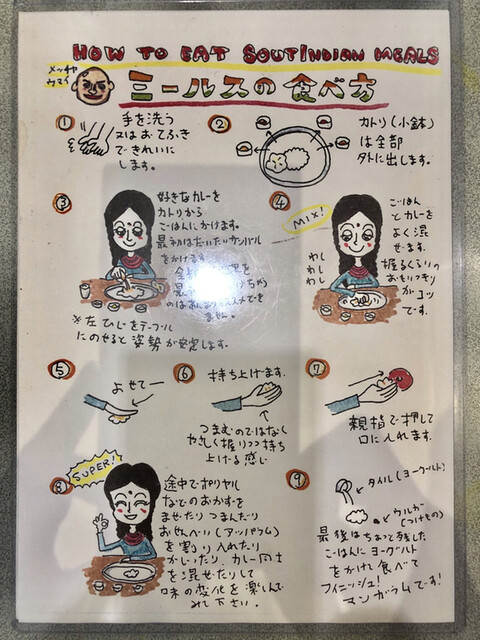 HOW TO EAT SOUTHINDIAN MEALS
メッチャ
ウマイ
ミールスの食べ方
①
手を洗う
又はおてふき
できれいに
します。
②
カトリ(小鉢)
は全部
外に出します。
③
好きなカレーを
カトリから
ごはんにかけます。
最初はだいたいサンバル
をかけます。
のはあんまりオススメでき
ません。
※左ひじをテーブル
にのせると姿勢が安定します。
④
MIX!
わし
わし
わし
ごはん
とカレーを
よく混
ぜます。
握るくらいの
おもいっきり
がコツ
です。
⑤
よせてー
⑥
持ち上げます。
つまむのではなく
やさしく握りつつ持ち
上げる感じ
⑦
親指で押して
口に入れます。
⑧
SUPER!
途中でポリヤル
などのおかずを
まぜたりつまんだり
おせんべい(アッパラム)
を割り入れたり
かじったり、カレー同士
を混ぜたりして
味の変化を楽しんで
みて下さい。
⑨
タイル(ヨーグルト)
ウルガー
(つけもの)
最後はちょっと残した
ごはんにヨーグルト
をかけ食べて
フィニッシュ!
マンガラムです!